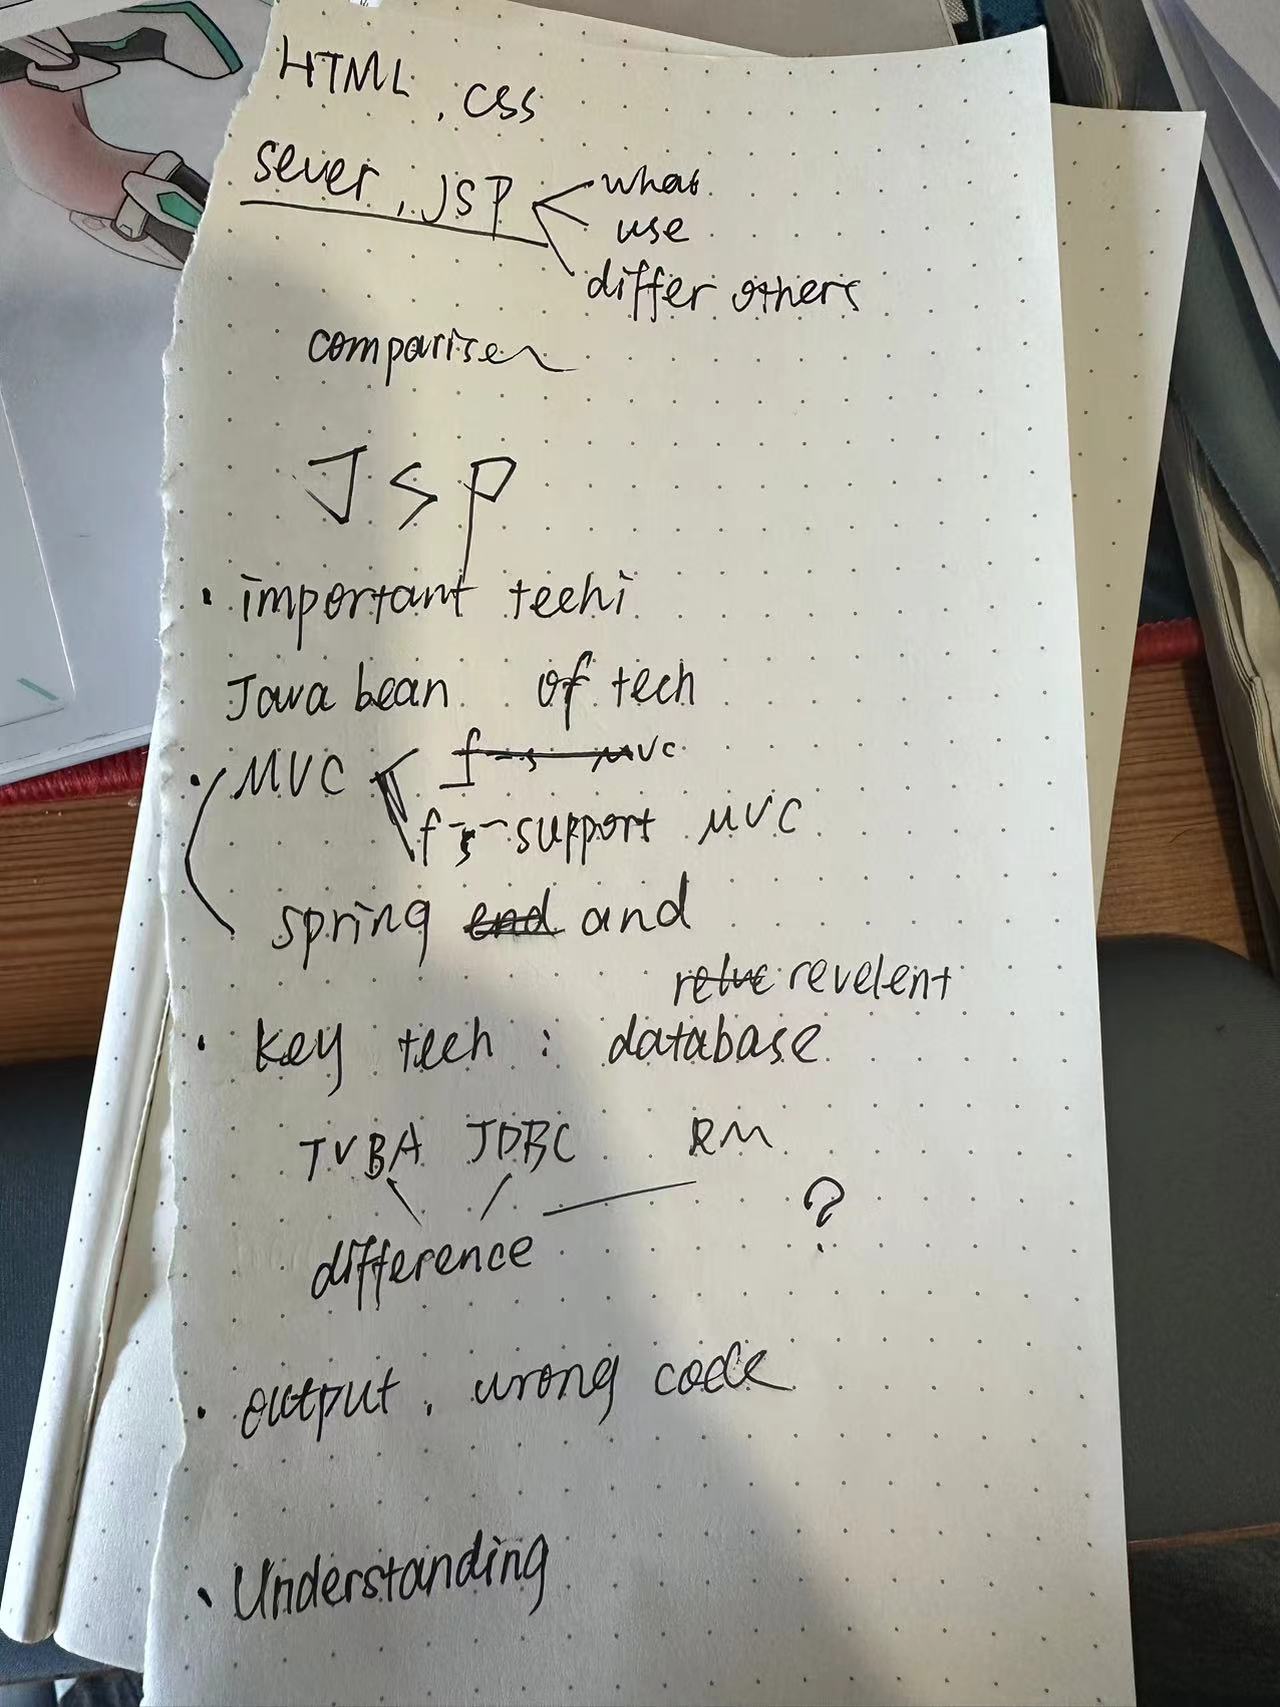 HTML, CSS
sever, JSP
what
use
differ others
comparisen
JSP
· important techi
Java bean of tech
· MVC
MVC
f-s-support MVC
spring end and
relve revelent
· key tech : database
TVBA JDBC RM
difference ?
· output, wrong code
· Understanding